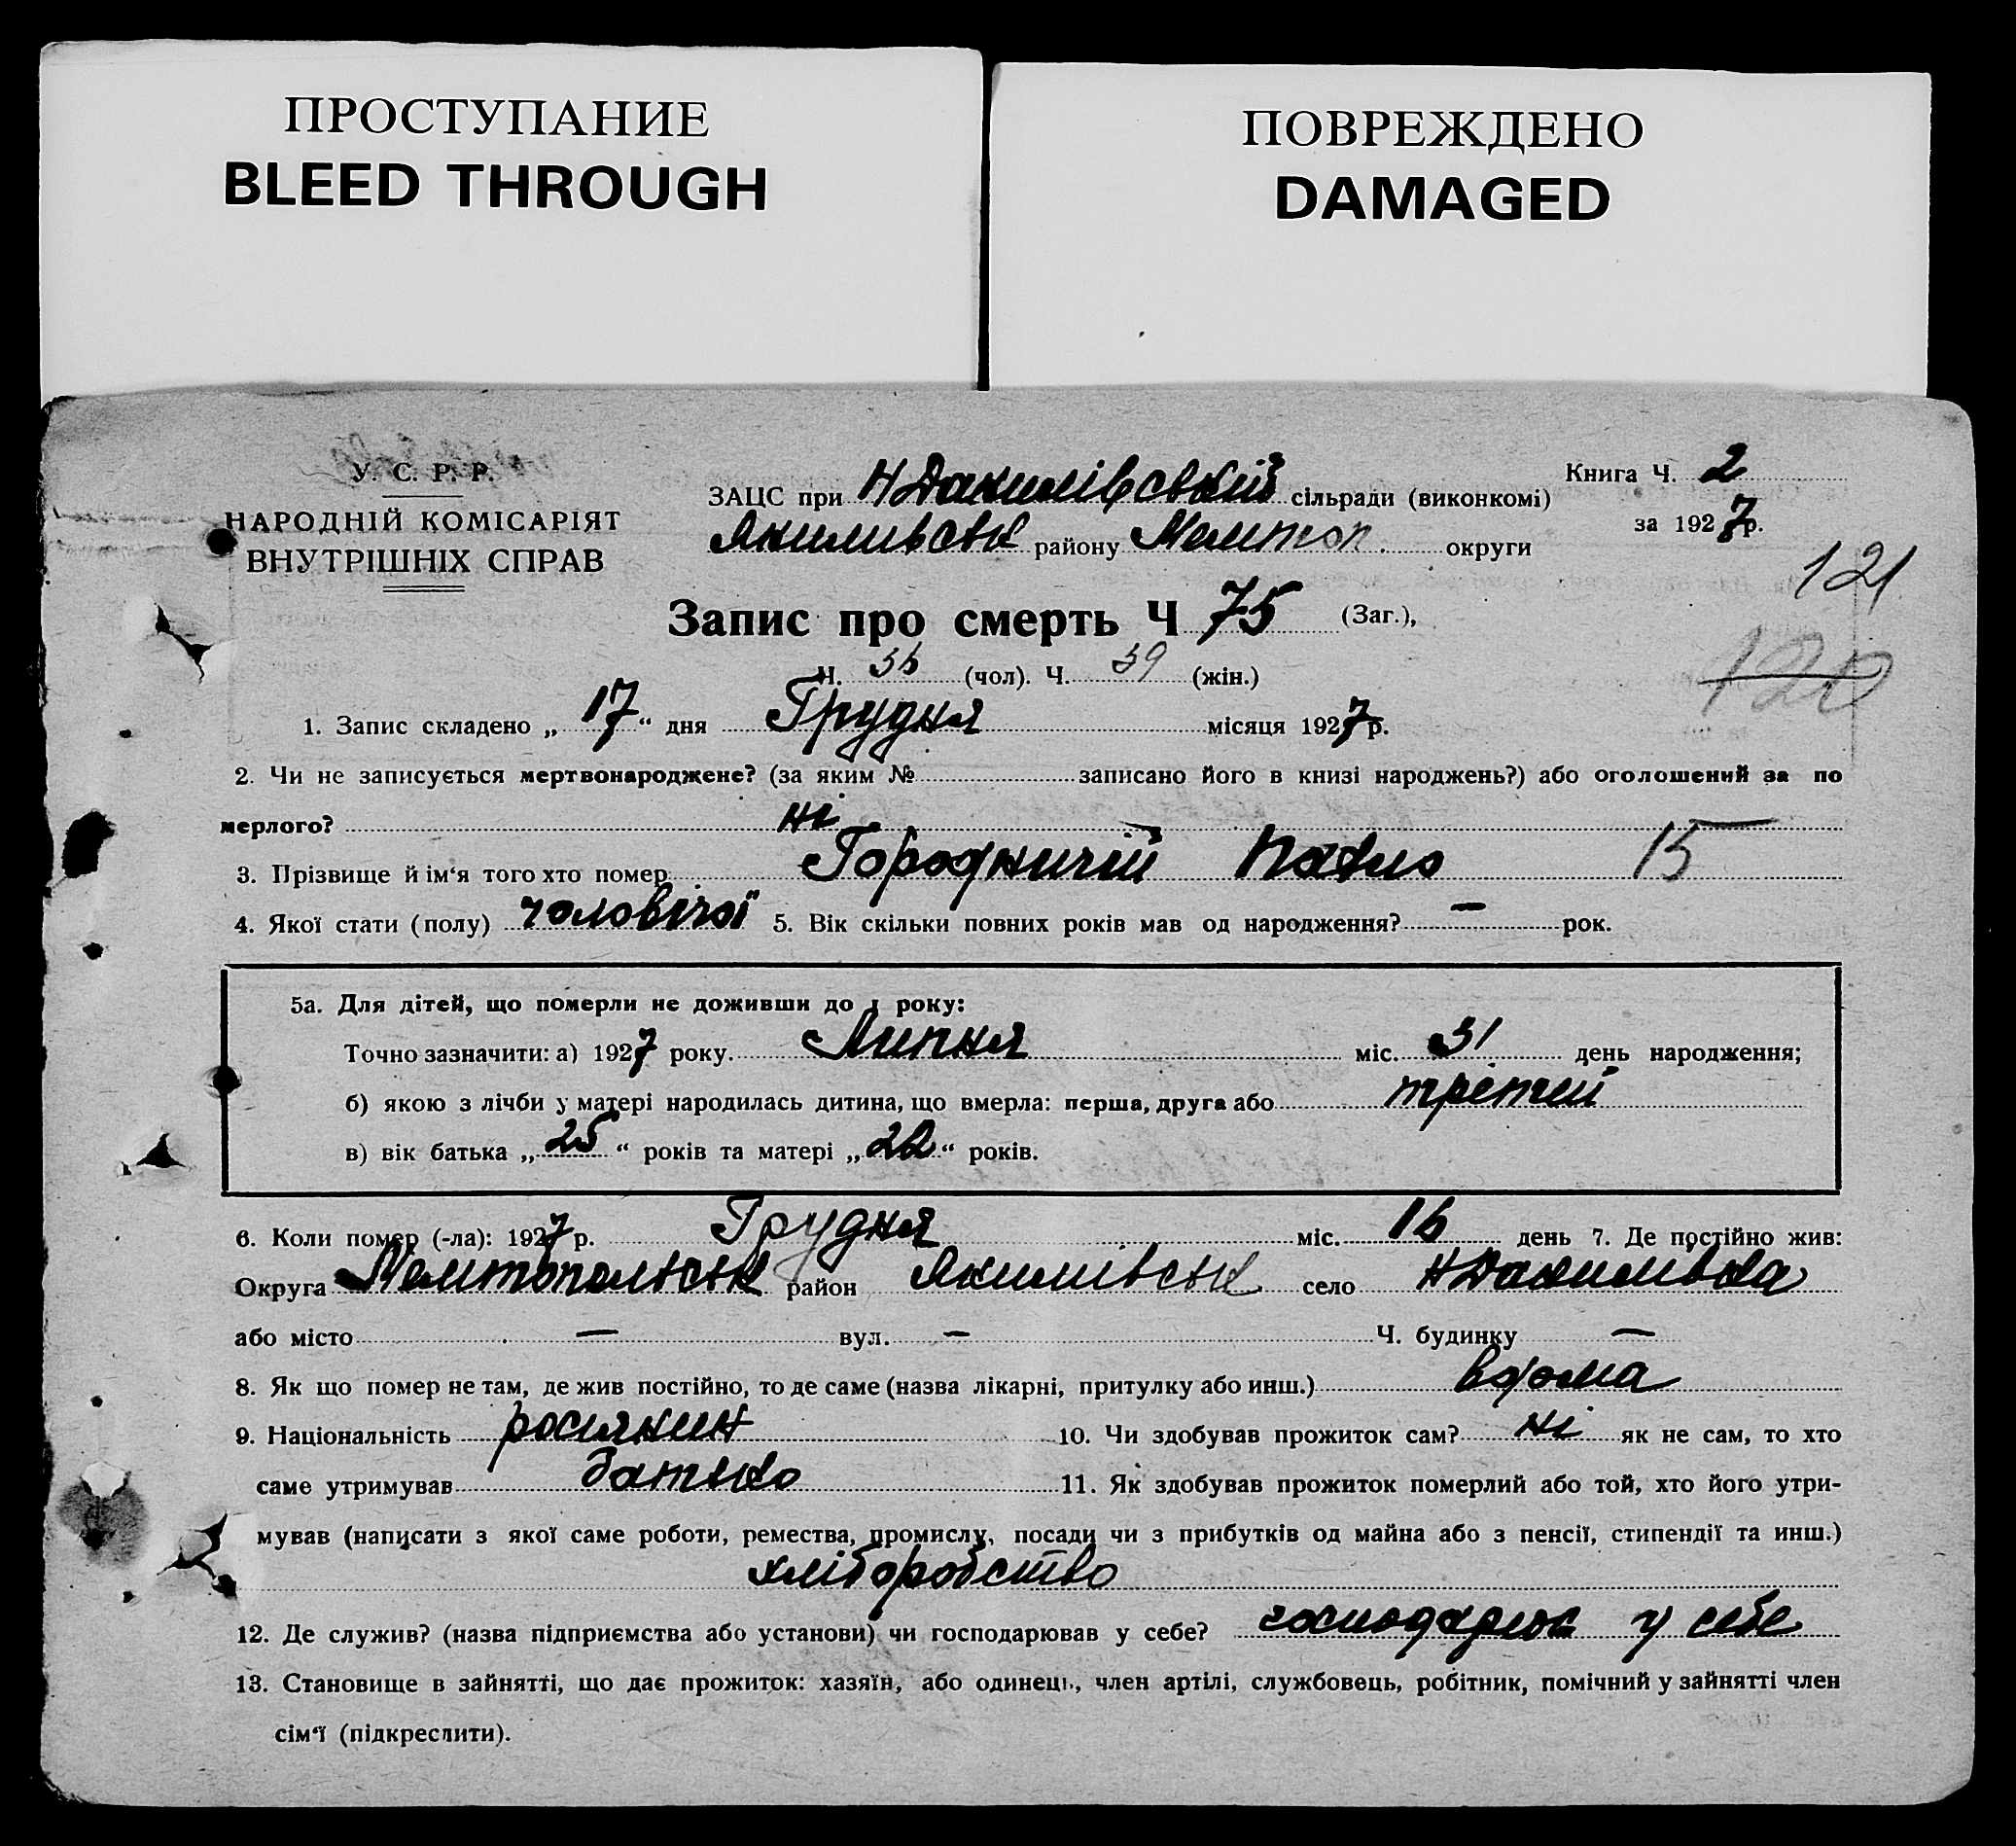 ПРОСТУПАНИЕ
BLEED THROUGH
ПОВРЕЖДЕНО
DAMAGED
У. С. Р. Р.
НАРОДНІЙ КОМІСАРІЯТ
ВНУТРІШНІХ СПРАВ
ЗАЦС при НДанилівській сільради (виконкомі)
Якимивськ району Мелитоп. округи
Книга Ч. 2
за 1927р.
121
Запис про смерть Ч 75 (Заг.),
120
Ч. 36 (чол). Ч. 39 (жін.)
1. Запис складено „17“ дня Грудня місяця 1927 р.
2. Чи не записується мертвонароджене? (за яким № записано його в книзі народжень?) або оголошений за по
мерлого? ні
3. Прізвище й ім‘я того хто помер Городничій Павло 15
4. Якої стати (полу) чоловічої 5. Вік скільки повних років мав од народження? — рок.
5а. Для дітей, що померли не доживши до 1 року:
Точно зазначити: а) 1927 року. Липня міс. 31 день народження;
б) якою з лічби у матері народилась дитина, що вмерла: перша, друга або третей
в) вік батька „25“ років та матері „22“ років.
6. Коли помер (-ла): 1927 р. Грудня міс. 16 день 7. Де постійно жив:
Округа Мелитопольськ район Якимівськ село НДанилівка
або місто — вул. — Ч. будинку —
8. Як що помер не там, де жив постійно, то де саме (назва лікарні, притулку або инш.) вдома
9. Національність росиянин 10. Чи здобував прожиток сам? ні як не сам, то хто
саме утримував батько 11. Як здобував прожиток померлий або той, хто його утри-
мував (написати з якої саме роботи, ремества, промислу, посади чи з прибутків од майна або з пенсії, стипендії та инш.)
хліборобство
12. Де служив? (назва підприємства або установи) чи господарював у себе? господарює у себе
13. Становище в зайнятті, що дає прожиток: хазяїн, або одинець, член артілі, службовець, робітник, помічний у зайнятті член
сім‘ї (підкреслити).